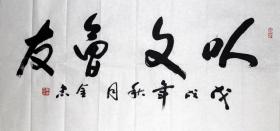 以文會友
戊戌年秋月金